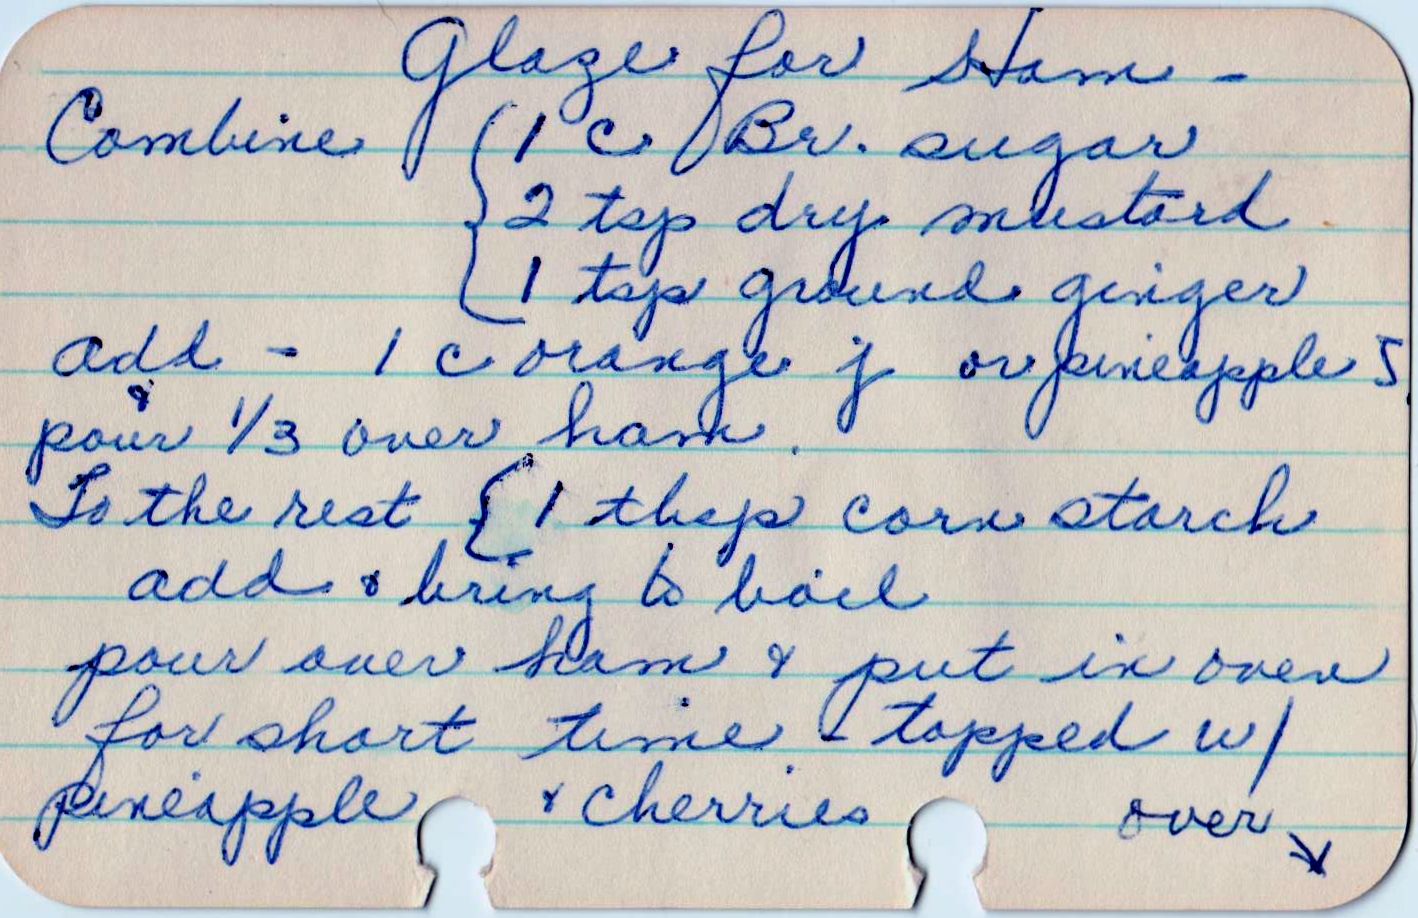 Glaze for Ham -
Combine { 1 c Br. sugar
2 tsp dry mustard
1 tsp ground ginger
add - 1 c orange j or pineapple J
& pour 1/3 over ham.
To the rest { 1 tbsp corn starch
add & bring to boil
pour over ham & put in oven
for short time - topped w/
pineapple & cherries over ↘